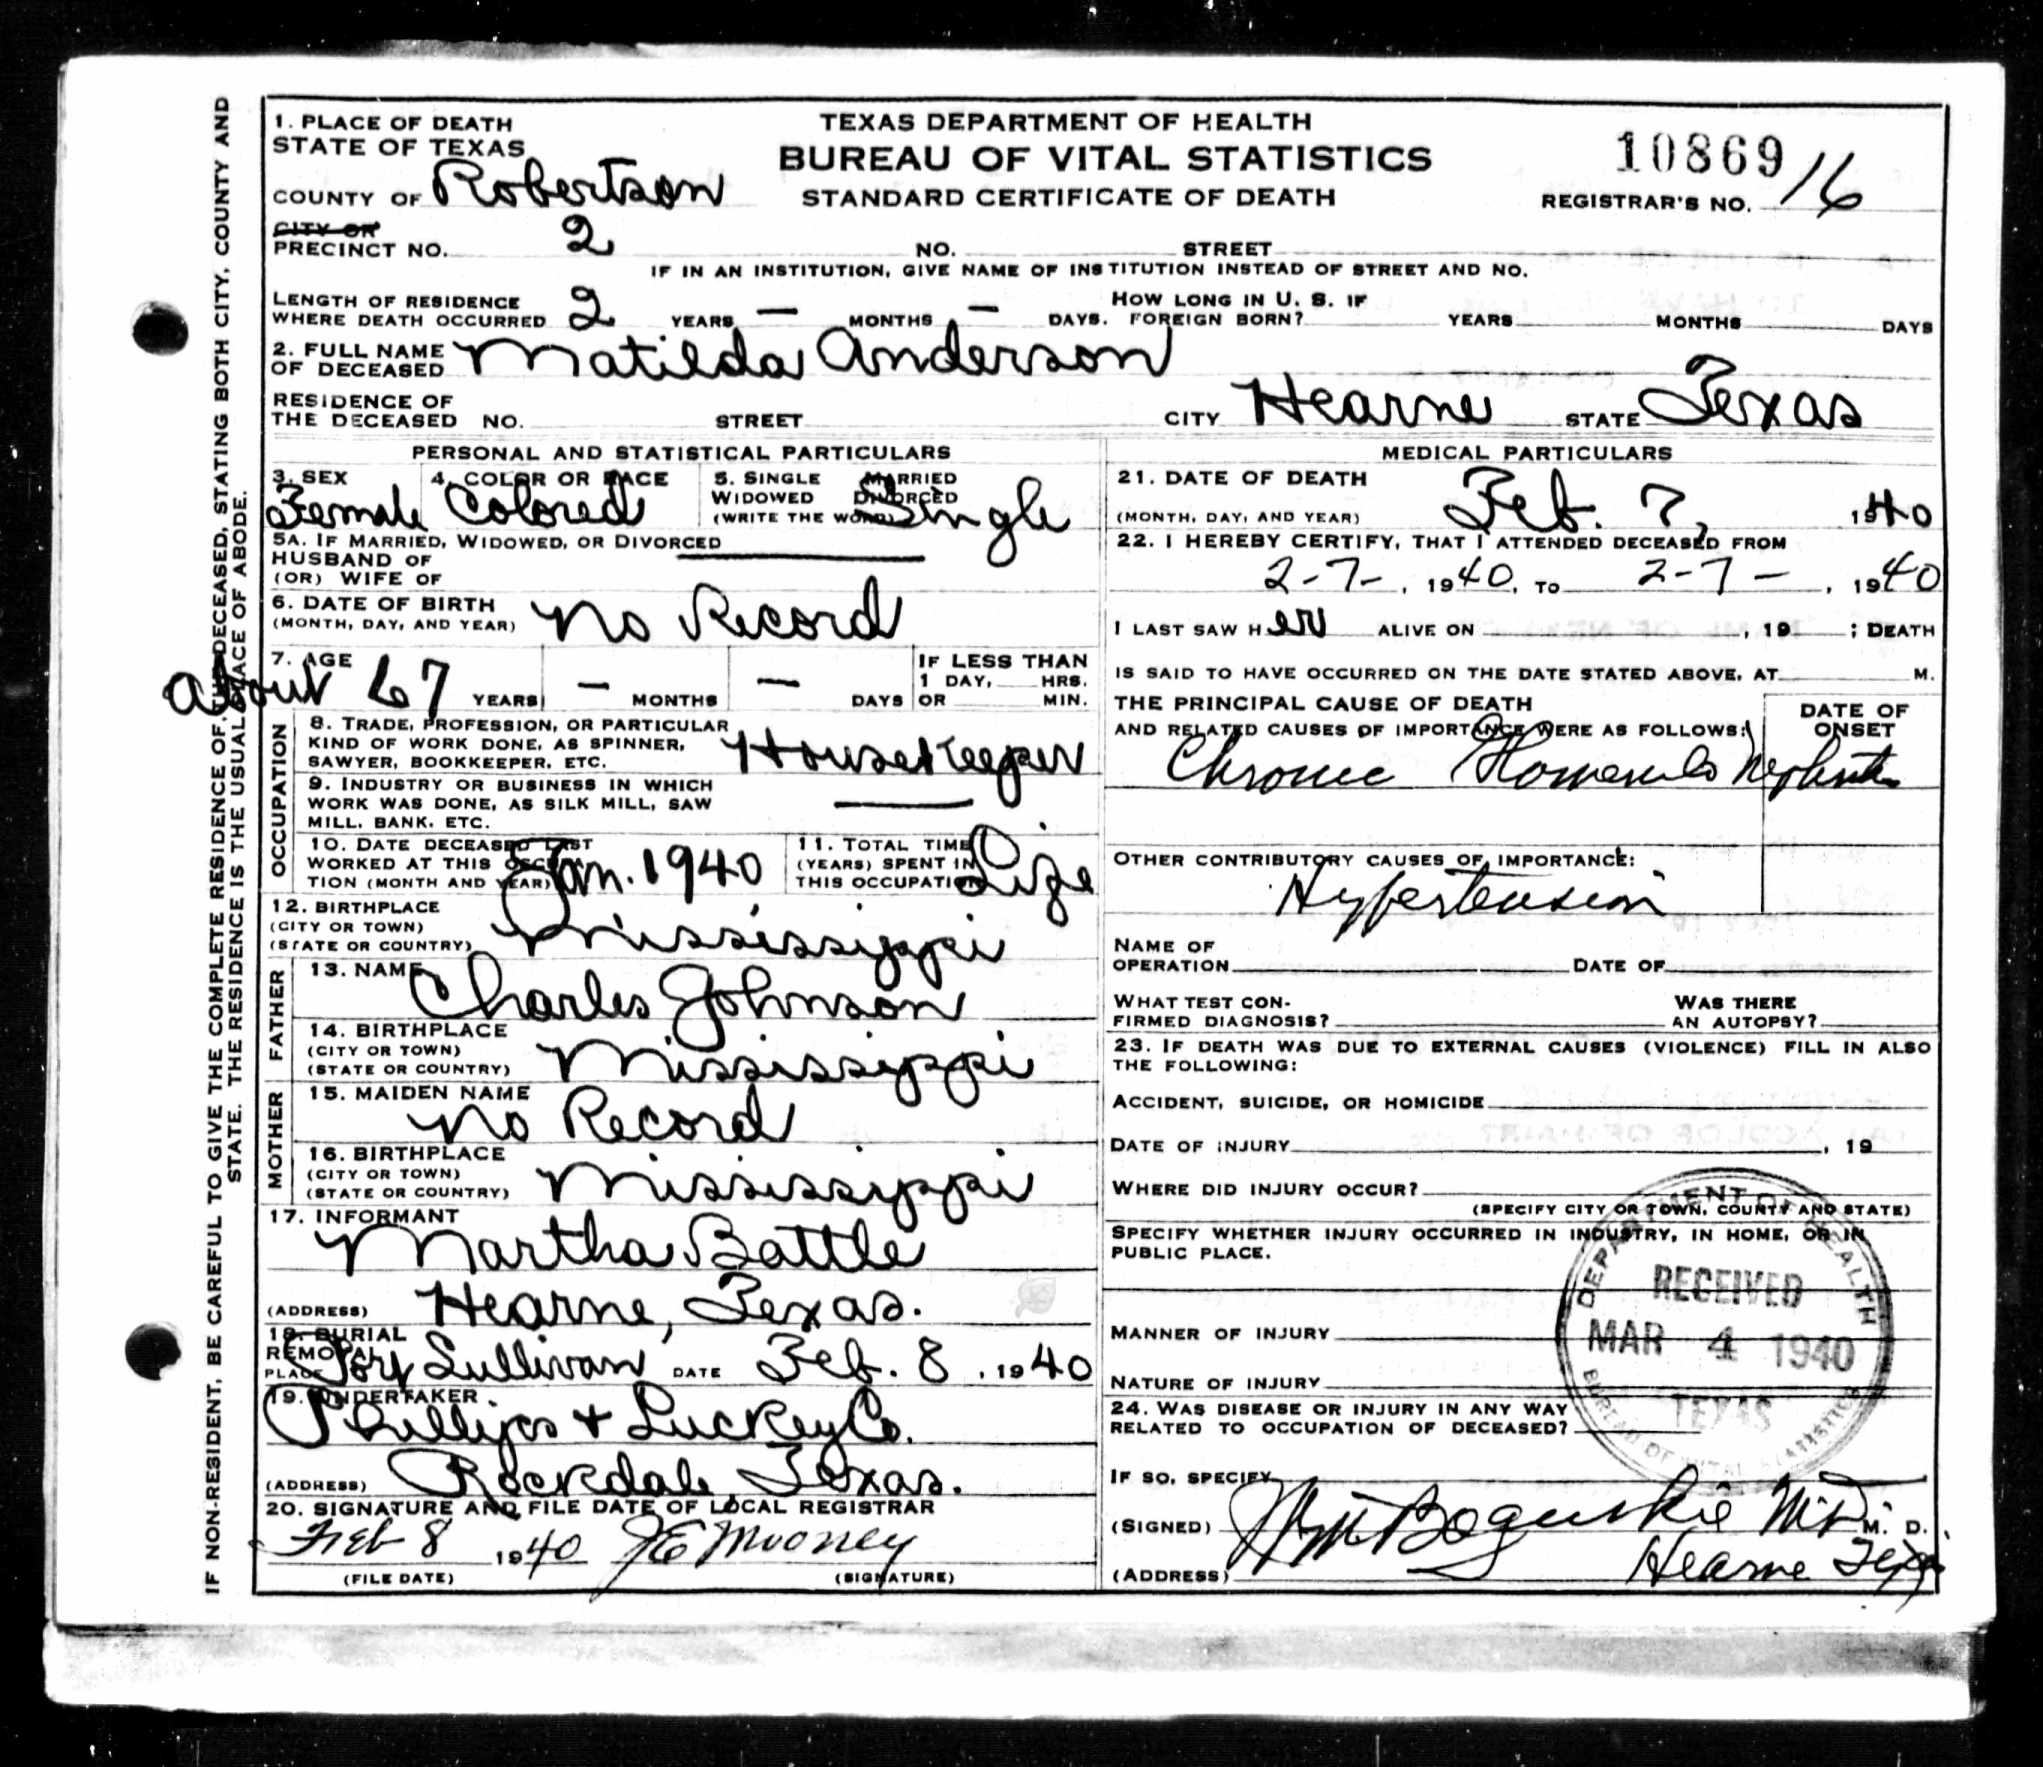 TEXAS DEPARTMENT OF HEALTH
BUREAU OF VITAL STATISTICS
STANDARD CERTIFICATE OF DEATH
10869
REGISTRAR'S NO. 16
1. PLACE OF DEATH
STATE OF TEXAS
COUNTY OF Robertson
CITY OR
PRECINCT NO. 2 NO. STREET
IF IN AN INSTITUTION, GIVE NAME OF INSTITUTION INSTEAD OF STREET AND NO.
LENGTH OF RESIDENCE HOW LONG IN U. S. IF
WHERE DEATH OCCURRED 2 YEARS — MONTHS — DAYS. FOREIGN BORN? YEARS MONTHS DAYS
2. FULL NAME
OF DECEASED Matilda Anderson
RESIDENCE OF
THE DECEASED NO. STREET CITY Hearne STATE Texas
PERSONAL AND STATISTICAL PARTICULARS
3. SEX 4. COLOR OR RACE 5. SINGLE MARRIED
WIDOWED DIVORCED
(WRITE THE WORD)
Female Colored Single
5A. IF MARRIED, WIDOWED, OR DIVORCED
HUSBAND OF
(OR) WIFE OF
6. DATE OF BIRTH
(MONTH, DAY, AND YEAR) No Record
7. AGE IF LESS THAN
1 DAY, HRS.
About 67 YEARS — MONTHS — DAYS OR MIN.
OCCUPATION
8. TRADE, PROFESSION, OR PARTICULAR
KIND OF WORK DONE, AS SPINNER,
SAWYER, BOOKKEEPER, ETC. HouseKeeper
9. INDUSTRY OR BUSINESS IN WHICH
WORK WAS DONE, AS SILK MILL, SAW
MILL, BANK, ETC.
10. DATE DECEASED LAST
WORKED AT THIS OCCUPA-
TION (MONTH AND YEAR) Jan. 1940
11. TOTAL TIME
(YEARS) SPENT IN
THIS OCCUPATION Life
12. BIRTHPLACE
(CITY OR TOWN)
(STATE OR COUNTRY) Mississippi
FATHER
13. NAME Charles Johnson
14. BIRTHPLACE
(CITY OR TOWN)
(STATE OR COUNTRY) Mississippi
MOTHER
15. MAIDEN NAME
No Record
16. BIRTHPLACE
(CITY OR TOWN)
(STATE OR COUNTRY) Mississippi
17. INFORMANT
Martha Battle
(ADDRESS) Hearne, Texas.
18. BURIAL
REMOVAL
PLACE Port Sullivan DATE Feb. 8, 1940
19. UNDERTAKER
Phillips + Luckey Co.
(ADDRESS) Rockdale, Texas.
20. SIGNATURE AND FILE DATE OF LOCAL REGISTRAR
Feb 8 1940 J E Mooney
(FILE DATE) (SIGNATURE)
MEDICAL PARTICULARS
21. DATE OF DEATH
(MONTH, DAY, AND YEAR) Feb. 7, 1940
22. I HEREBY CERTIFY, THAT I ATTENDED DECEASED FROM
2-7-, 1940, TO 2-7-, 1940
I LAST SAW HER ALIVE ON , 19 ; DEATH
IS SAID TO HAVE OCCURRED ON THE DATE STATED ABOVE, AT M.
THE PRINCIPAL CAUSE OF DEATH
AND RELATED CAUSES OF IMPORTANCE WERE AS FOLLOWS:
DATE OF
ONSET
Chronic Glomerulo Nephritis
OTHER CONTRIBUTORY CAUSES OF IMPORTANCE:
Hypertension
NAME OF
OPERATION DATE OF
WHAT TEST CON- WAS THERE
FIRMED DIAGNOSIS? AN AUTOPSY?
23. IF DEATH WAS DUE TO EXTERNAL CAUSES (VIOLENCE) FILL IN ALSO
THE FOLLOWING:
ACCIDENT, SUICIDE, OR HOMICIDE
DATE OF INJURY , 19
WHERE DID INJURY OCCUR?
(SPECIFY CITY OR TOWN, COUNTY AND STATE)
SPECIFY WHETHER INJURY OCCURRED IN INDUSTRY, IN HOME, OR IN
PUBLIC PLACE.
MANNER OF INJURY
NATURE OF INJURY
24. WAS DISEASE OR INJURY IN ANY WAY
RELATED TO OCCUPATION OF DECEASED?
IF SO, SPECIFY
(SIGNED) Boguskie M.D. M. D.
(ADDRESS) Hearne Texas
DEPARTMENT OF HEALTH
RECEIVED
MAR 4 1940
TEXAS
BUREAU OF VITAL STATISTICS
IF NON-RESIDENT, BE CAREFUL TO GIVE THE COMPLETE RESIDENCE OF THE DECEASED, STATING BOTH CITY, COUNTY AND
STATE. THE RESIDENCE IS THE USUAL PLACE OF ABODE.